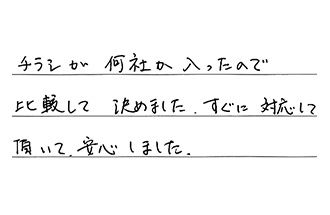 チラシが 何社か 入ったので
比較して 決めました. すぐに 対応して
頂いて. 安心 しました.